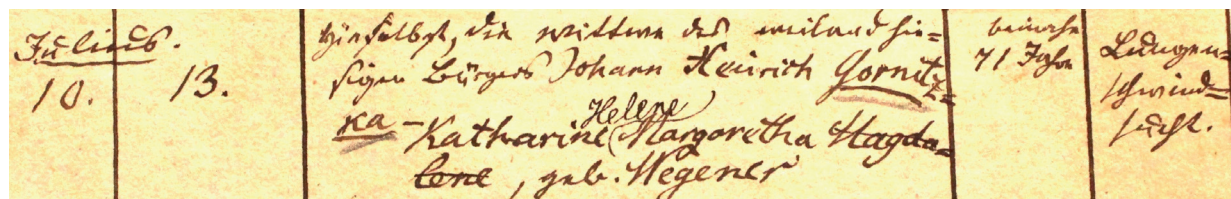 Julius.
10. 13.
hieselbst, die Wittwe des weiland hie=
sigen Bürgers Johann Heinrich Gornitz=
ka - Katharine Helene Margaretha Magda=
lene, geb. Wegener
beinahe
71 Jahre
Lungen=
schwind=
sucht.